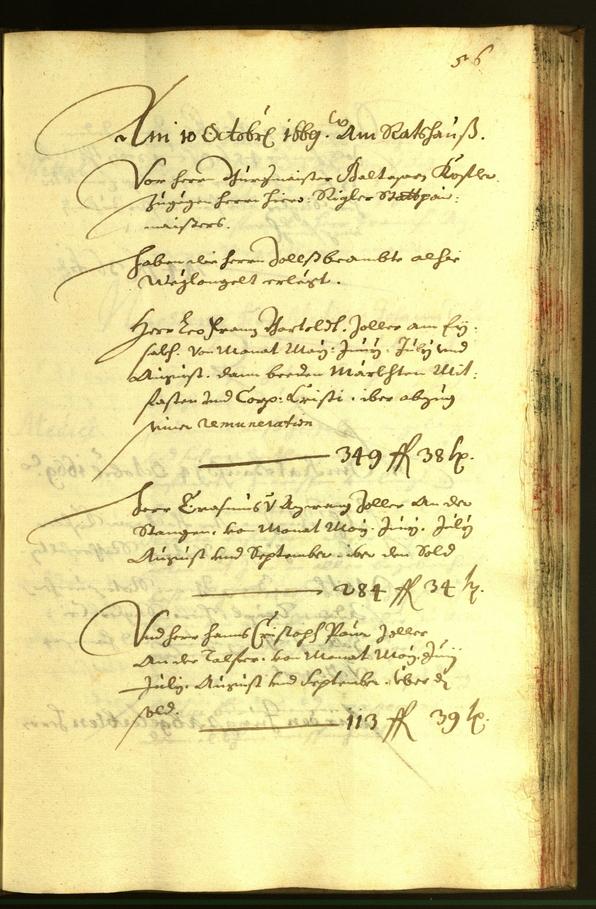 56
Am 10 Octobris 1669. Am Rathauß.
Vor Herrn Burgmaister Baltasarn
Zugegen Herrn Hiero: Rigler Stattpau-
maisters.
Haben die Herrn Zollsbeambte alhie
Weglongelt erlegt.
Herr Leo Franz Zoller am Ey-
sakh. von Monat May: Juny. July und
August. dann beeden Märckhten Mit-
fasten und Corp: Cristi. iber abzug
seiner remuneration
349 fl 38 kr.
Herr Erasmus v Zoller an der
Stangen. von Monat May. Juny. July
August und September. iber den Sold
284 fl 34 kr.
Und Herr Hanns Cristoph Paur Zoller
An der Talfer. von Monat May. Juny
July. August und September. iber dz
sold.
113 fl 39 kr.